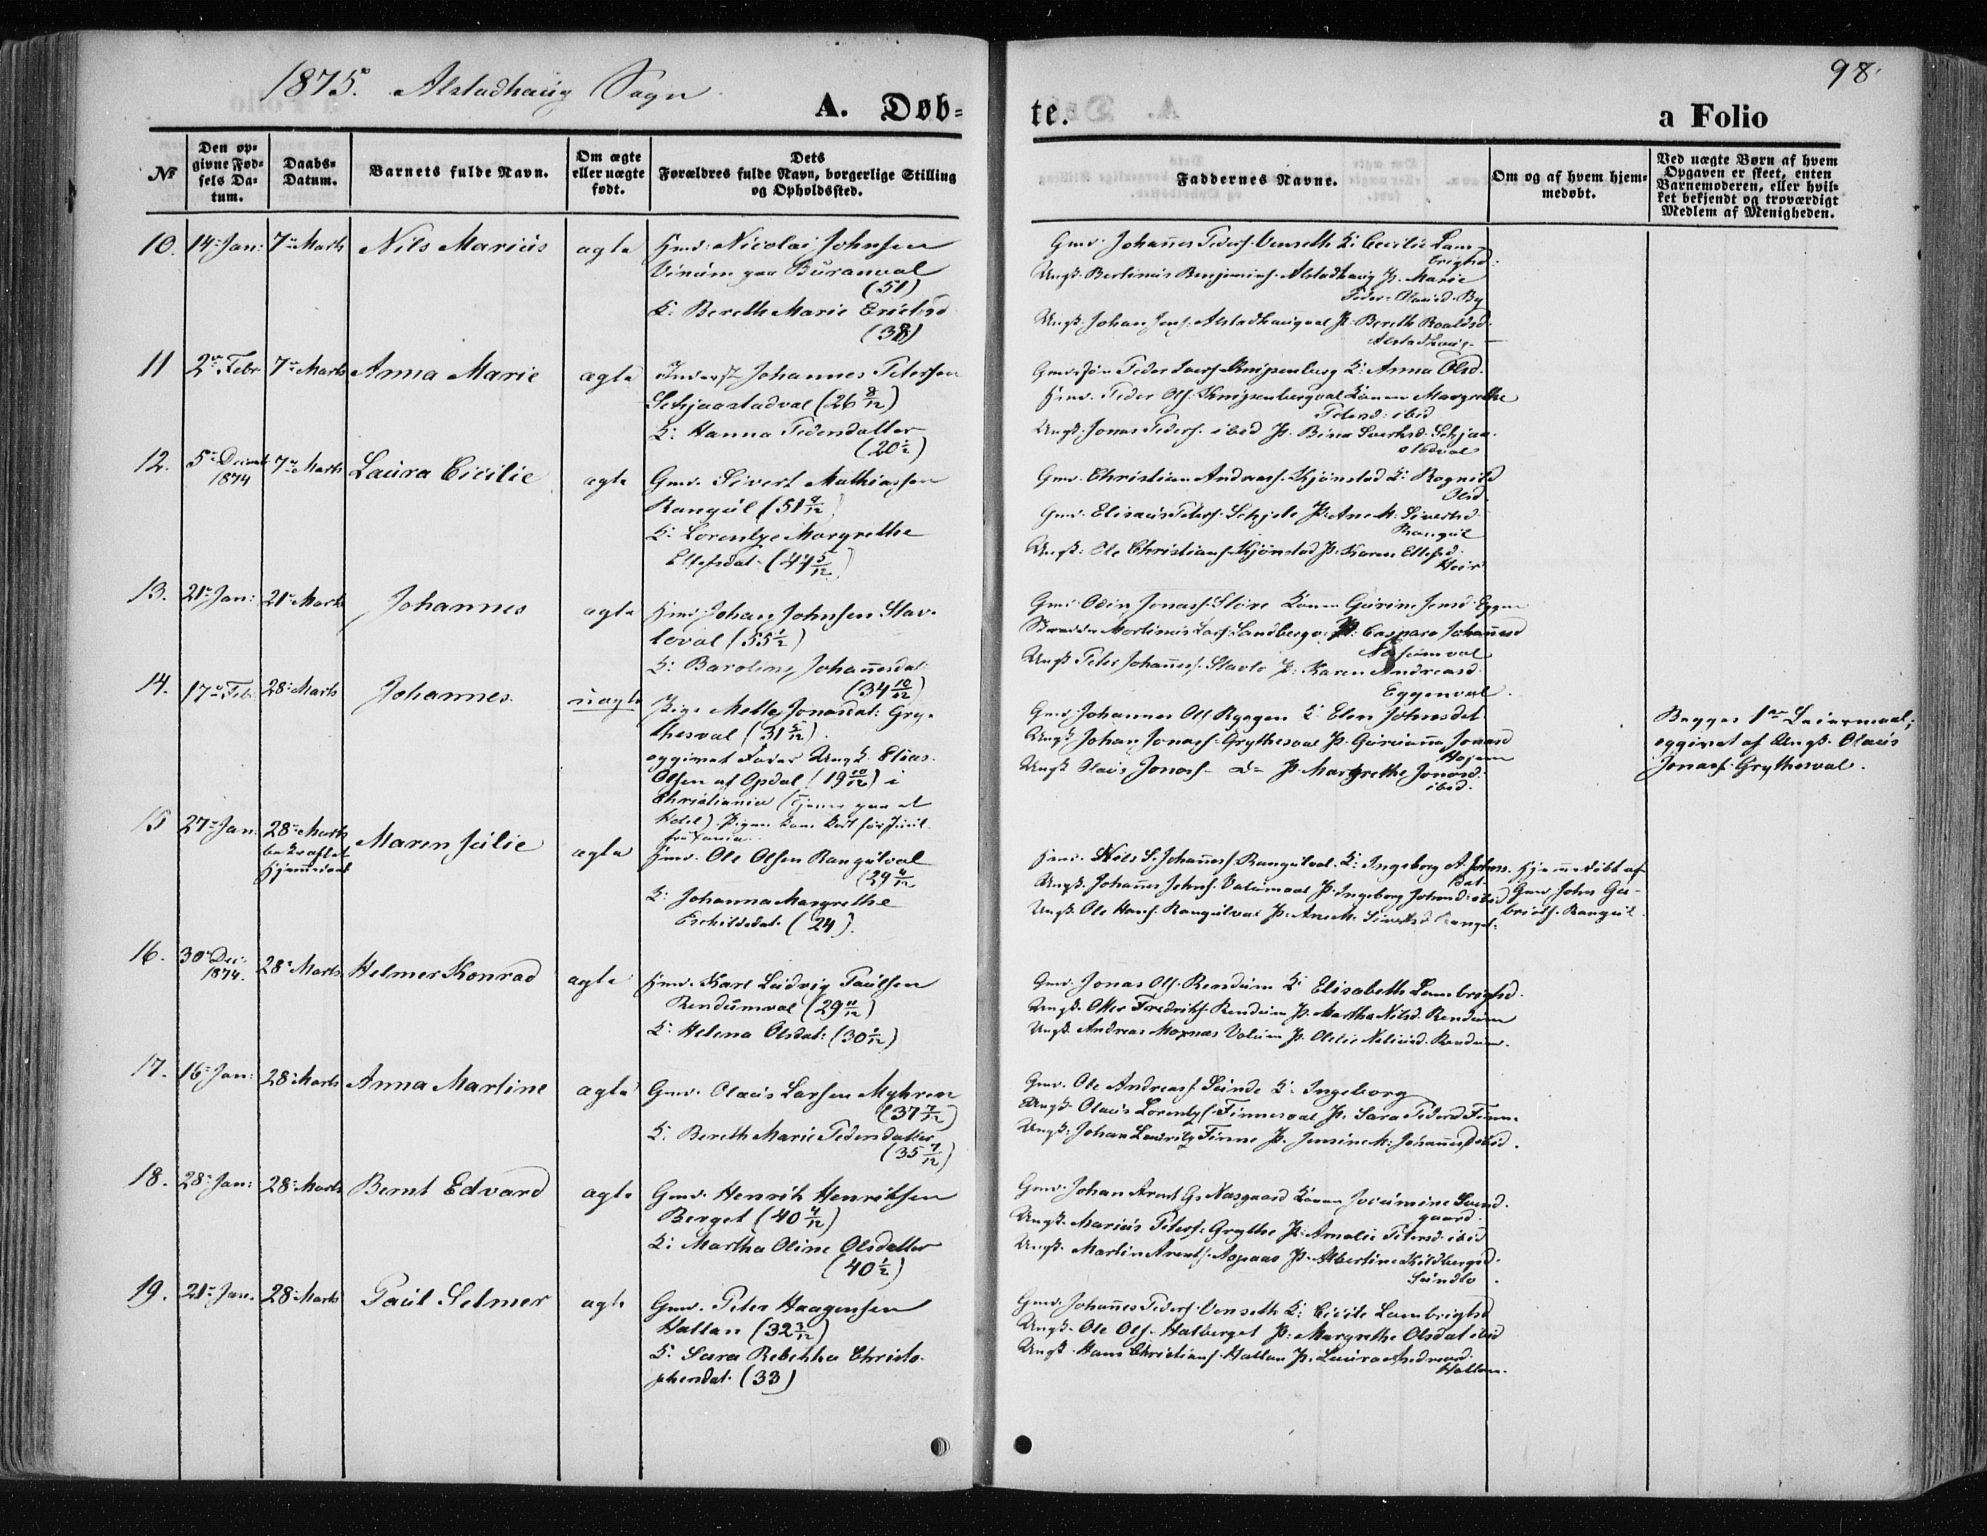 1875. Alstadhaug Sogn
98.
A. Døb-
te.
a Folio
No
Den op-
givne Fød-
sels Da-
tum.
Daabs-
Datum.
Barnets fulde Navn.
Om ægte
eller uægte
født.
Dets
Forældres fulde Navn, borgerlige Stilling
og Opholdssted.
Faddernes Navne.
Om og af hvem hjem-
medøbt.
Ved uægte Børn af hvem
Opgaven er skeet, enten
Barnemoderen, eller hvil-
ket bekjendt og troværdigt
Medlem af Menigheden.
10. 14 Jan: 7 Marts Nils Marius ægte
Hmd. Nicolai Johnsen
Vinum paa Buranval
(51)
K: Bereth Marie Erichsd
(38)
Gmd. Johannes Peders. Venseth K: Cecilie Lam-
brigtsd.
Ungk. Bertinus Benjamins. Alstadhaug P. Marie
Peder-Olausd. By
Ungk. Johan Jons. Alstadhaugval P. Bereth Roaldsd.
Alstadhaug
11 2 Febr 7 Marts Anna Marie ægte
Inderst Johannes Petersen
Schjaastadval (26 8/12)
K: Hanna Pedersdatter
(20 1/2)
K: Anna Olsd.
Hmd. Peder Ols. Knipenbergval Konen Margrethe
Petersd: ibid
Ungk. Jonas Peders. ibid P. Bina Sivertsd. Schjaa-
stadval
12. 5 Decemb 1874 7 Marts Laura Cicilie ægte
Gmd. Sivert Mathiassen
Rangul (51 9/12)
K: Lorentze Margrethe
Ellefsdat. (44 5/12)
Gmd. Christian Andreass. Kjønstad K: Ragnild
Olsd
Gmd. Elisæus Peters. Schjele P. Ane M. Sivertsd
Rangul
Ungk. Ole Christians. Kjønstad P. Karen Ellefsd.
Heir
13. 21 Jan: 21 Marts Johannes ægte
Hmd Johan Johnsen Stav-
loval (55 1/2)
K: Baroline Johannesdat.
(34 10/12)
Gmd. Odin Jonass. Støre Konen Gurine Jensd. Eggen
Martinus Lars. Sandberg P. Caspara Johannesd
Ungk Peter Johannes. Stavlo P. Karen Andreasd.
Eggenval
14. 17 Feb. 28 Marts Johannes. uægte
Pige Mette Jonasdat: Gry-
thesval (31 5/12)
opgivet Fader Ungk. Elias
Olsen af Opdal (19 10/12) i
Christiania (tjener paa et
Hotel). Pigen kom bort før Juul
Gmd Johannes Ols Ryggen K. Elen Johnsdat
Ungk Johan Jonass. Grythesval P. Guriana Jonasd
Hojem
Ungk Olaus Jonass - do P. Margrethe Jonasd.
ibid.
Begges 1ste Leiermaal;
opgivet af Ungk. Olaus
Jonass. Grythesval.
15 27 Jan. 28 Marts
bekræftet
Hjemmedaab
Maren Julie ægte
Hmd. Ole Olsen Rangulval
(29 4/12)
K: Johanna Margrethe
Eschildsdat. (24).
Hmd. Nils S. Johanness. Rangulval. K: Ingeborg A. Johns-
dat.
Ungk. Johannes Johns. Valumval P. Ingeborg Johansd. ibid
Ungk. Ole Hans. Rangulval P. Ane M. Sivertsd Rangul.
Hjemmedøbt af
Gmd John Ga-
briels. Rangul.
16. 30 Dec. 1874. 28 Marts Helmer Konrad ægte
Hmd. Karl Ludvig Paulsen
Rendumval (29 11/12)
K: Helena Olsdat: (30 1/12)
Gmd. Jonas Ols. Rendum K: Elisabeth Lambrigtsd.
Ungk. Otter Fredriks. Rendum P. Martha Nilsd. Rendum
Ungk. Andreas Moxnæs Valum P. Olelie Neliusd. Rendum.
17. 16 Jan: 28 Marts Anna Martine ægte
Gmd. Olaus Larsen Myhren
(37 7/12)
K. Bereth Marie Pedersdatter
(35 7/12)
Gmd. Ole Andreass. Sunde K. Ingeborg
Ungk. Olaus Lorentzs. Finnesval P. Sara Pedersd Finne
Ungk: Johan Lauritz Finne P. Jensine M: Johannesd ibid.
18. 28 Jan: 28 Marts Bernt Edvard ægte
Gmd. Henrik Henriksen
Berget (40 4/12)
K: Martha Oline Olsdatter
(40 1/2)
Gmd. Johan Arnt Gs Næsgaard Konen Jocumine Sund-
gaard.
Ungk. Marius Peters. Grythe P. Amalie Petersd. ibid
Ungk. Martin Arents. Aspaas P. Albertine Kildbergsd.
Sundlo.
19. 21 Jan. 28 Marts Paul Selmer ægte
Gmd. Peter Haagensen
Hallan (32 3/12)
K. Sara Rebekka Christo-
phersdat. (33)
Gmd. Johannes Peders. Venseth K: Cicile Lambrigtsd
Ungk. Ole Ols. Halberget P. Margrethe Olsdat ibid
Ungk. Hans Christians. Hallan P. Laura Andreasd.
Hallan.